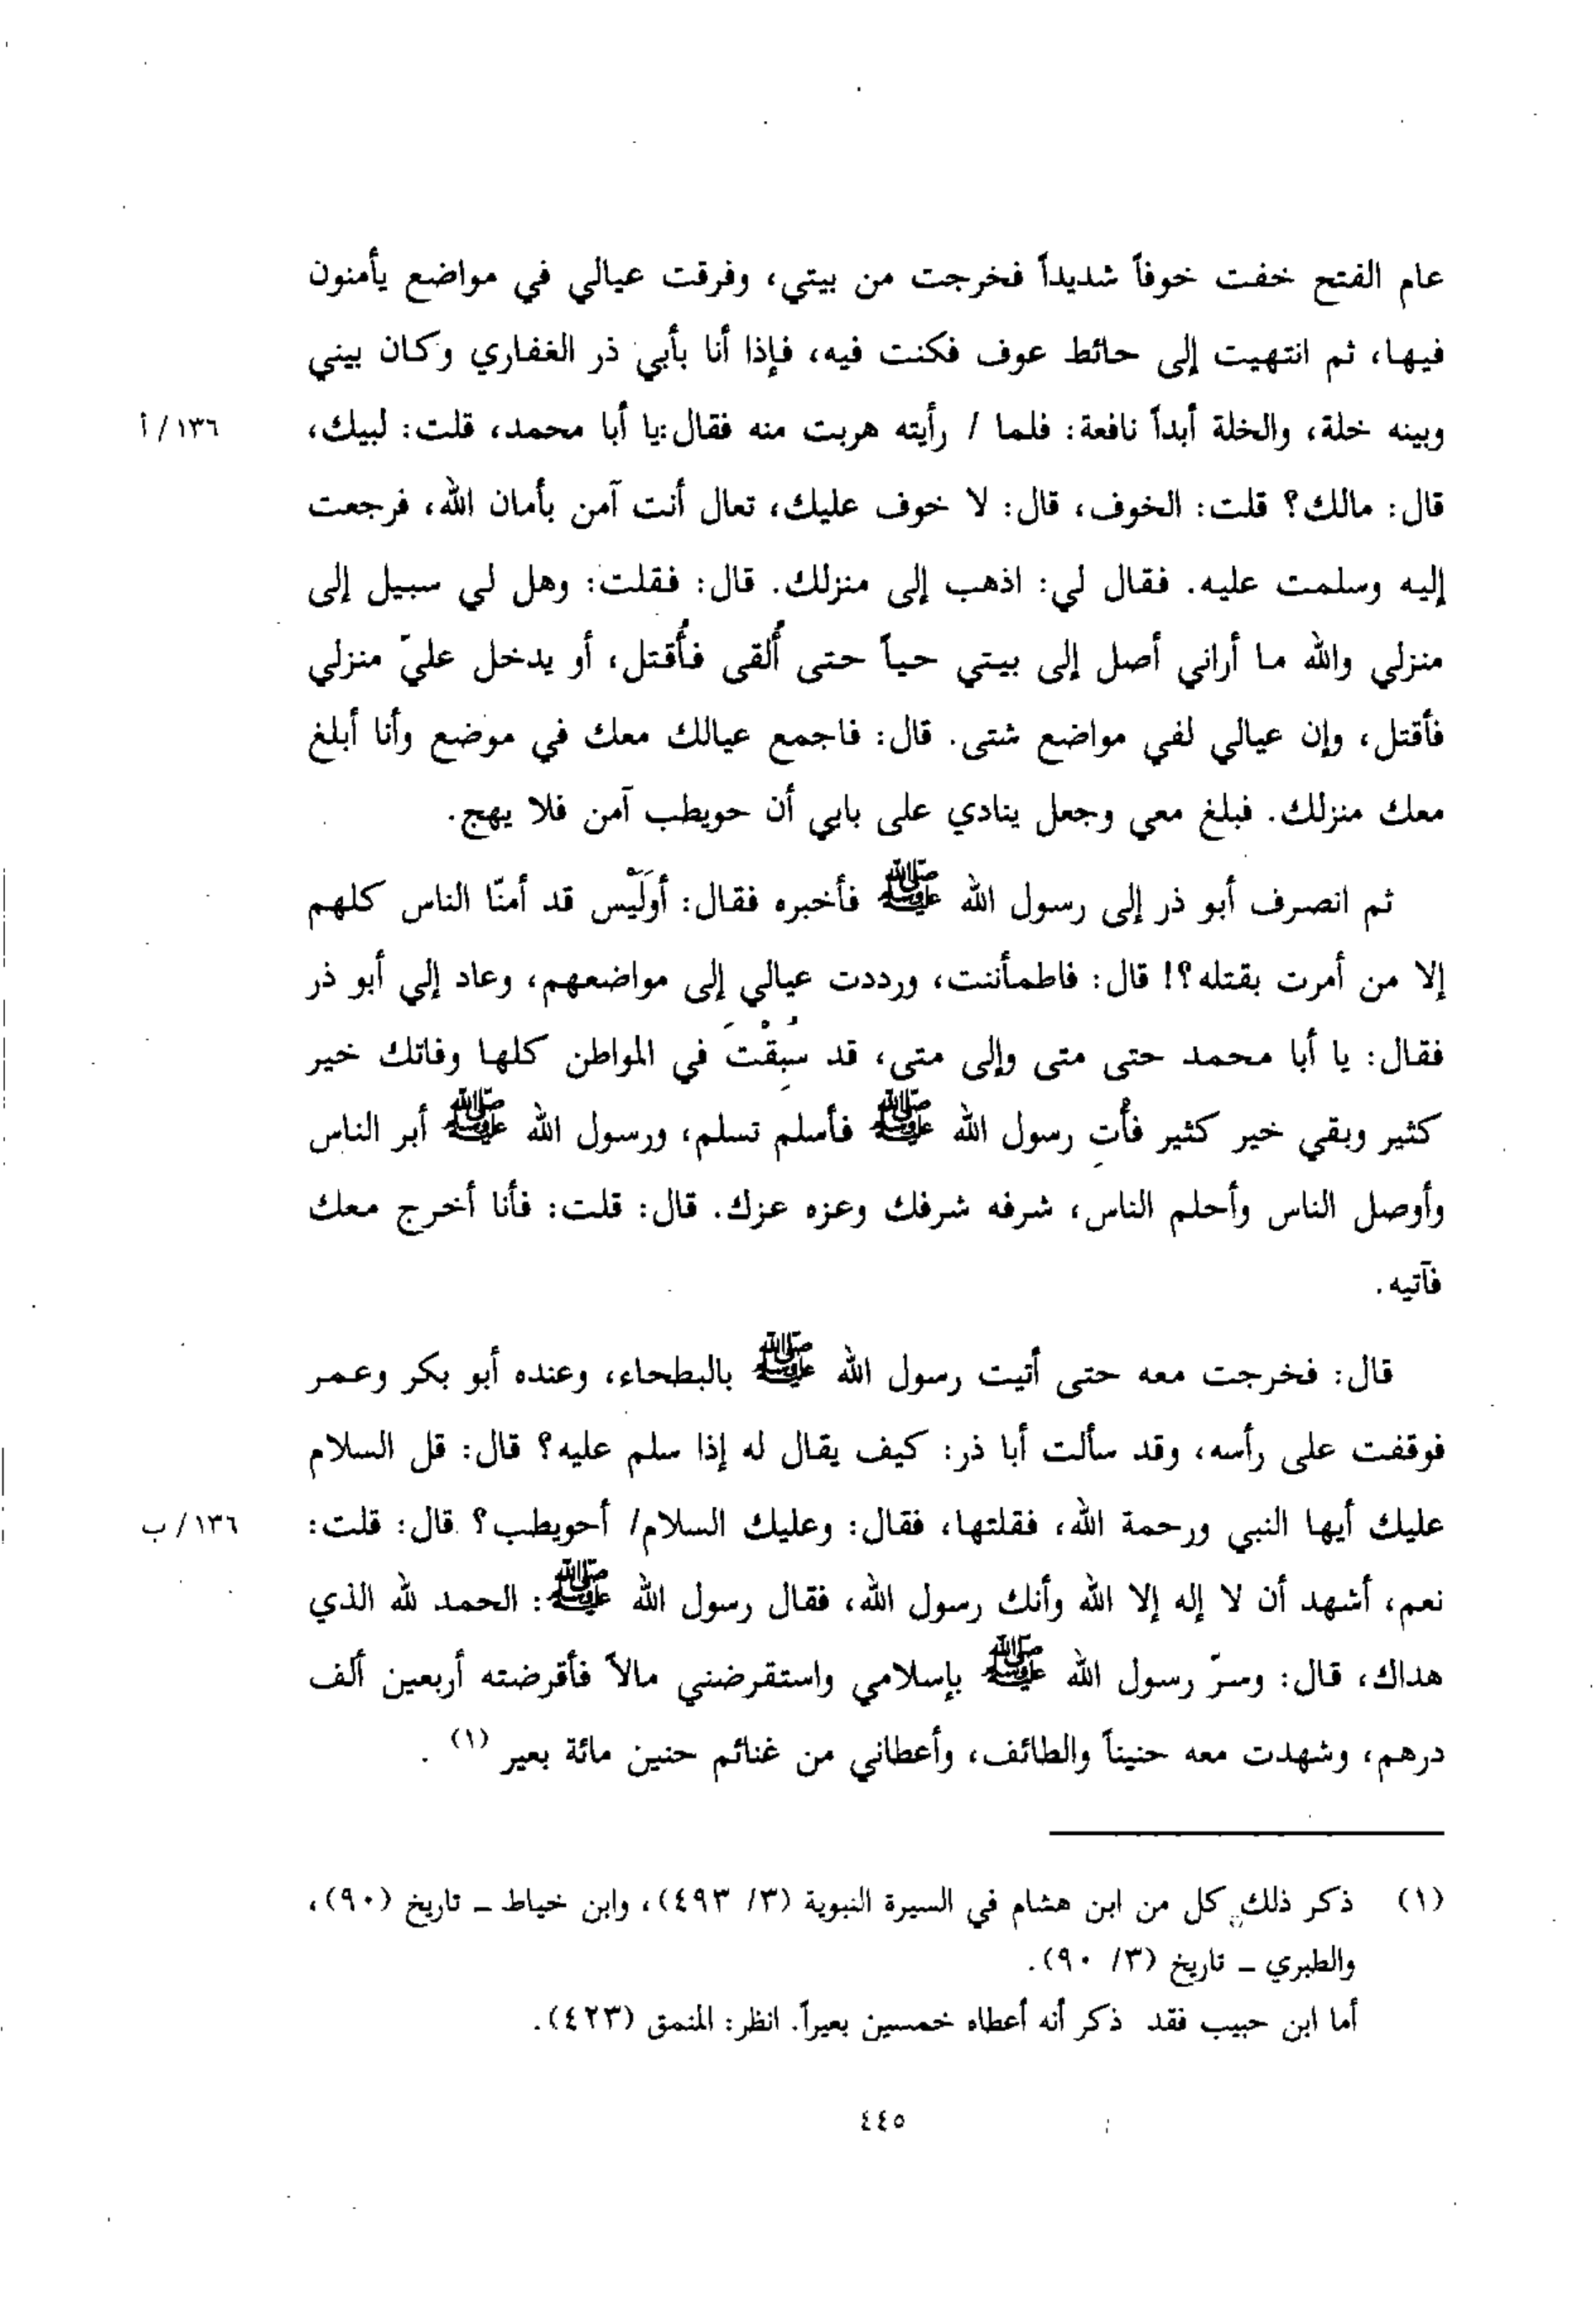 عام الفتح خفت خوفاً شديداً فخرجت من بيتي، وفرقت عيالي في مواضع يأمنون
فيها، ثم انتهيت إلى حائط عوف فكنت فيه، فإذا أنا بأبي ذر الغفاري وكان بيني
وبينه خلة، والخلة أبداً نافعة: فلما / رأيته هربت منه فقال: يا أبا محمد، قلت: لبيك، ١٣٦/ أ
قال: مالك؟ قلت: الخوف، قال: لا خوف عليك، تعال أنت آمن بأمان الله، فرجعت
إليه وسلمت عليه. فقال لي: اذهب إلى منزلك. قال: فقلت: وهل لي سبيل إلى
منزلي والله ما أراني أصل إلى بيتي حياً حتى أُلقى فأُقتل، أو يدخل عليّ منزلي
فأقتل، وإن عيالي لفي مواضع شتى. قال: فاجمع عيالك معك في موضع وأنا أبلغ
معك منزلك. فبلغ معي وجعل ينادي على بابي أن حويطب آمن فلا يهج.
ثم انصرف أبو ذر إلى رسول الله ﷺ فأخبره فقال: أوَلَيْس قد أمنّا الناس كلهم
إلا من أمرت بقتله؟! قال: فاطمأننت، ورددت عيالي إلى مواضعهم، وعاد إلي أبو ذر
فقال: يا أبا محمد حتى متى وإلى متى، قد سُبِقْتَ في المواطن كلها وفاتك خير
كثير وبقي خير كثير فأْتِ رسول الله ﷺ فأسلم تسلم، ورسول الله ﷺ أبر الناس
وأوصل الناس وأحلم الناس، شرفه شرفك وعزه عزك. قال: قلت: فأنا أخرج معك
فآتيه.
قال: فخرجت معه حتى أتيت رسول الله ﷺ بالبطحاء، وعنده أبو بكر وعمر
فوقفت على رأسه، وقد سألت أبا ذر: كيف يقال له إذا سلم عليه؟ قال: قل السلام
عليك أيها النبي ورحمة الله، فقلتها، فقال: وعليك السلام/ أحويطب؟ قال: قلت: ١٣٦/ ب
نعم، أشهد أن لا إله إلا الله وأنك رسول الله، فقال رسول الله ﷺ: الحمد لله الذي
هداك، قال: وسرّ رسول الله ﷺ بإسلامي واستقرضني مالاً فأقرضته أربعين ألف
درهم، وشهدت معه حنيناً والطائف، وأعطاني من غنائم حنين مائة بعير (١) .
(١) ذكر ذلك كل من ابن هشام في السيرة النبوية (٣/ ٤٩٣)، وابن خياط ـ تاريخ (٩٠)،
والطبري ـ تاريخ (٣/ ٩٠).
أما ابن حبيب فقد ذكر أنه أعطاه خمسين بعيراً. انظر: المنمق (٤٢٣).
٤٤٥